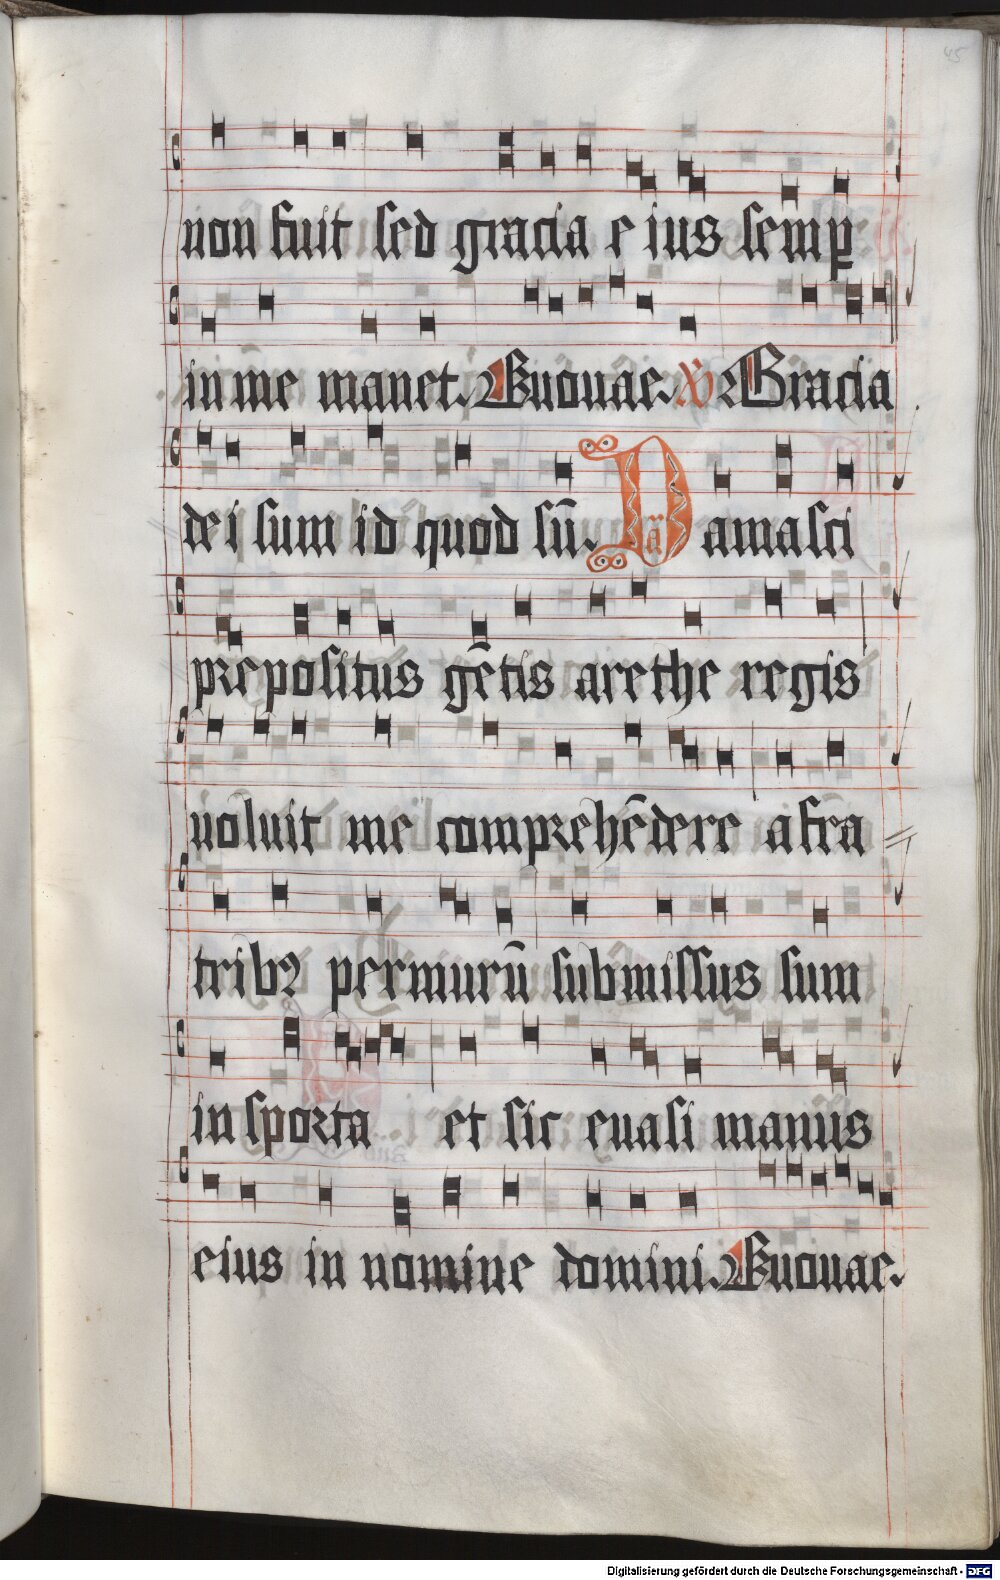 45
non fuit sed gracia eius semꝑ
in me manet. Euouae. V Gracia
dei sum id quod sū. Damasci
prepositus gētis arethe regis
uoluit me comprehēdere a fra
tribꝫ per murū submissus sum
in sporta et sic euasi manus
eius in nomine domini. Euouae.
Digitalisierung gefördert durch die Deutsche Forschungsgemeinschaft - DFG